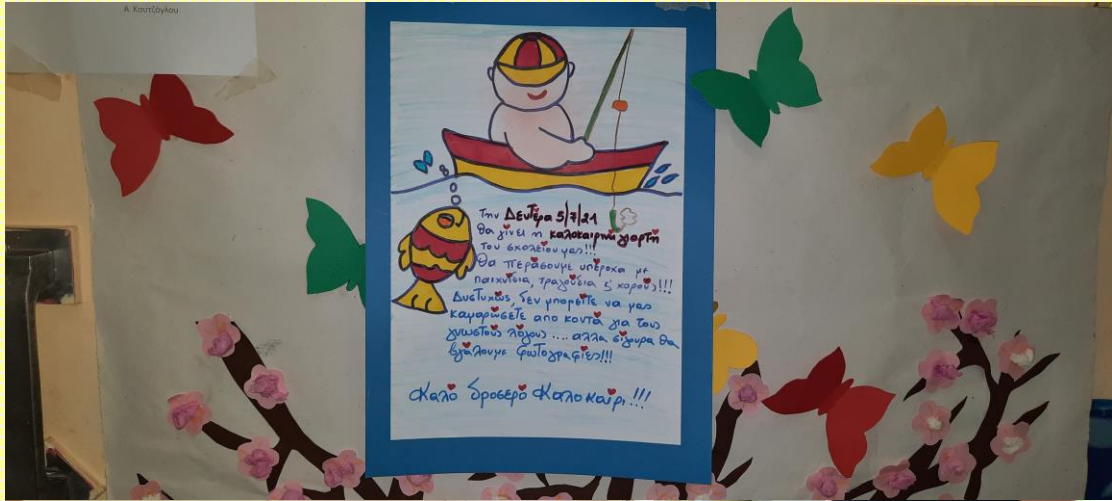 Α. Κουτζόγλου
Την Δευτέρα 5/7/21
θα γίνει η καλοκαιρινή γιορτή
του σχολείου μας!!!
Θα περάσουμε υπέροχα με
παιχνίδια, τραγούδια & χορούς!!!
Δυστυχώς, δεν μπορείτε να μας
καμαρώσετε απο κοντά για τους
γνωστούς λόγους .... αλλα σίγουρα θα
βγάλουμε φωτογραφίες!!!
Καλό δροσερό Καλοκαίρι!!!